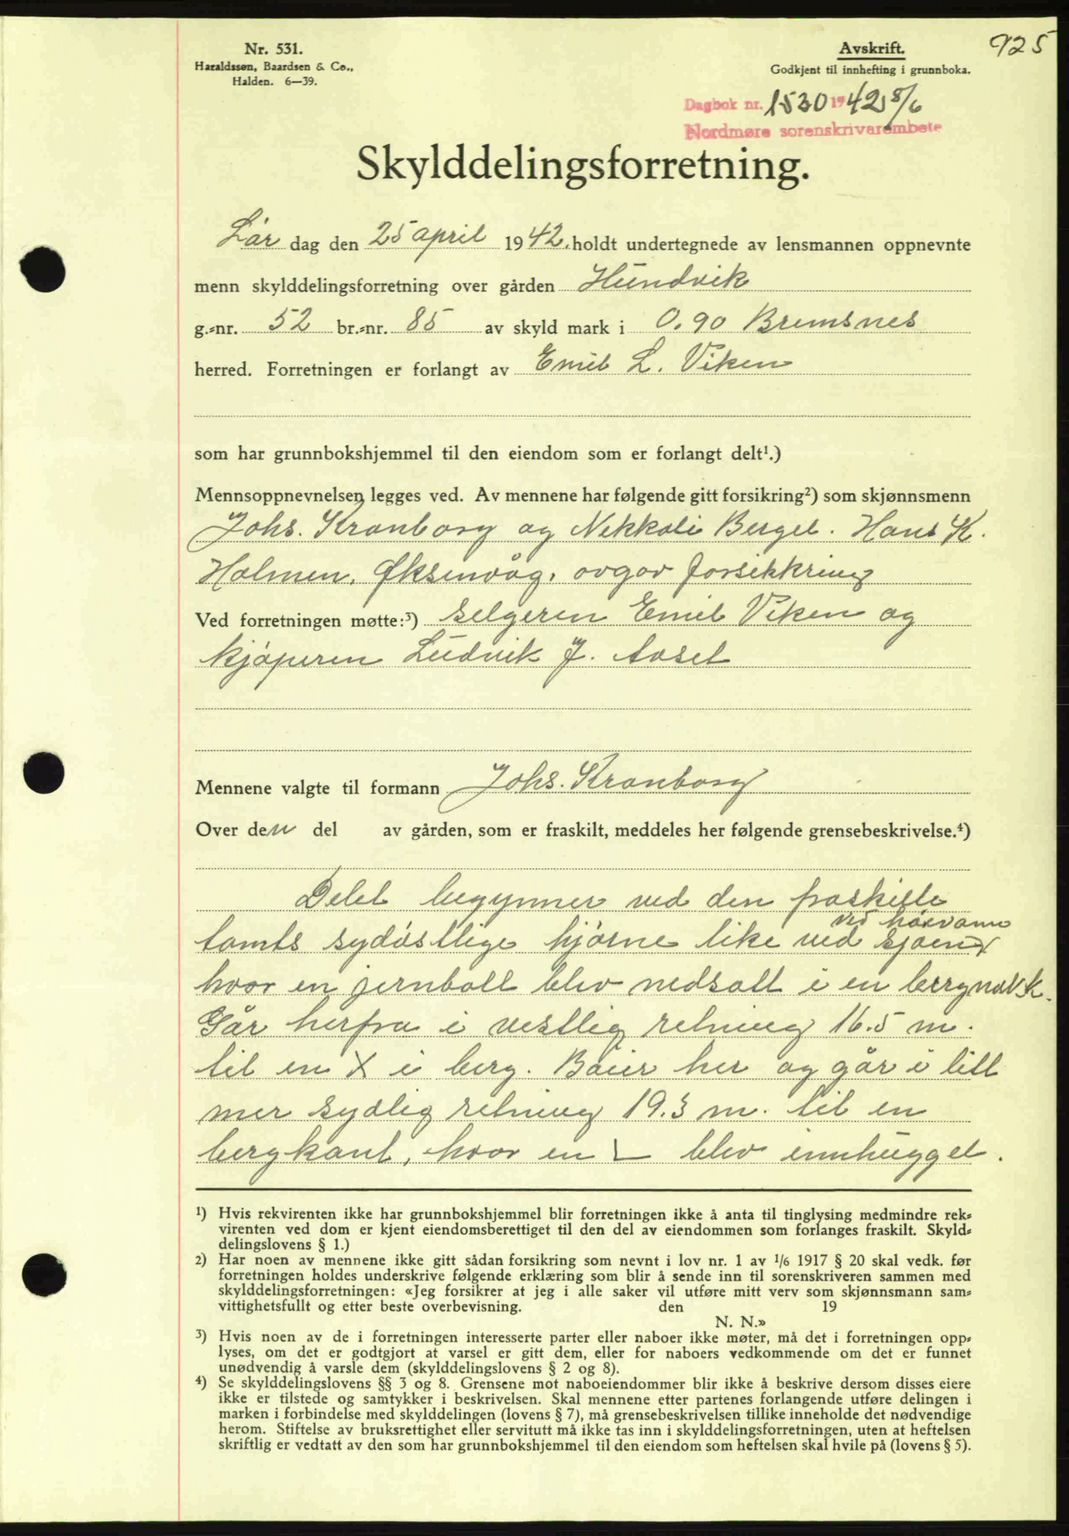 925
Nr. 531.
Haraldssøn, Baardsen & Co.,
Halden. 6—39.
Avskrift.
Godkjent til innhefting i grunnboka.
Dagbok nr. 1530 1942 8/6
Nordmøre sorenskrivarembete
Skylddelingsforretning.
Lør dag den 25 april 1942, holdt undertegnede av lensmannen oppnevnte
menn skylddelingsforretning over gården Hundvik
g.-nr. 52 br.-nr. 85 av skyld mark i 0.90 Bremsnes
herred. Forretningen er forlangt av Emil L. Viken
som har grunnbokshjemmel til den eiendom som er forlangt delt¹.)
Mennsoppnevnelsen legges ved. Av mennene har følgende gitt forsikring²) som skjønnsmenn
Johs. Kranborg og Nikkoli Berget. Hans K.
Holmen, Øksenvåg, avgav forsikkring
Ved forretningen møtte:³) selgeren Emil Viken og
kjøperen Ludvik J. Aaset
Mennene valgte til formann Johs. Kranborg
Over den del av gården, som er fraskilt, meddeles her følgende grensebeskrivelse.⁴)
Delet begynner ved den fraskilte
tomts sydøstlige hjørne like ved sjøen ved høivann
hvor en jernbolt blev nedsatt i en bergnabb.
Går herfra i vestlig retning 16.5 m.
til en X i berg. Bøier her og går i litt
mer sydlig retning 19.3 m. til en
bergkant, hvor en ∟ blev innhugget.
¹) Hvis rekvirenten ikke har grunnbokshjemmel blir forretningen ikke å anta til tinglysing medmindre rek-
virenten ved dom er kjent eiendomsberettiget til den del av eiendommen som forlanges fraskilt. Skyld-
delingslovens § 1.)
²) Har noen av mennene ikke gitt sådan forsikring som nevnt i lov nr. 1 av 1/6 1917 § 20 skal vedk. før
forretningen holdes underskrive følgende erklæring som blir å sende inn til sorenskriveren sammen med
skylddelingsforretningen: «Jeg forsikrer at jeg i alle saker vil utføre mitt verv som skjønnsmann sam-
vittighetsfullt og etter beste overbevisning. den 19
N. N.»
³) Hvis noen av de i forretningen interesserte parter eller naboer ikke møter, må det i forretningen opp-
lyses, om det er godtgjort at varsel er gitt dem, eller for naboers vedkommende om det er funnet
unødvendig å varsle dem (skylddelingslovens § 2 og 8).
⁴) Se skylddelingslovens §§ 3 og 8. Grensene mot naboeiendommer blir ikke å beskrive dersom disses eiere
ikke er tilstede og samtykker i beskrivelsen. Skal mennene etter partenes forlangende utføre delingen i
marken i forbindelse med skylddelingen (lovens § 7), må grensebeskrivelsen tillike inneholde det nødvendige
herom. Stiftelse av bruksrettighet eller servitutt må ikke tas inn i skylddelingsforretningen, uten at heftelsen
skriftlig er vedtatt av den som har grunnbokshjemmel til den eiendom som heftelsen skal hvile på (lovens § 5).